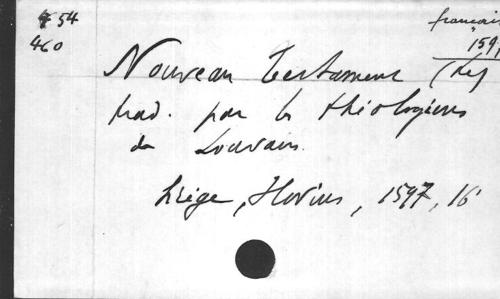 554
460
français
1597
Nouveau Testament (Le)
trad. par les théologiens
de Louvain.
Liège, Hovius, 1597, 16°